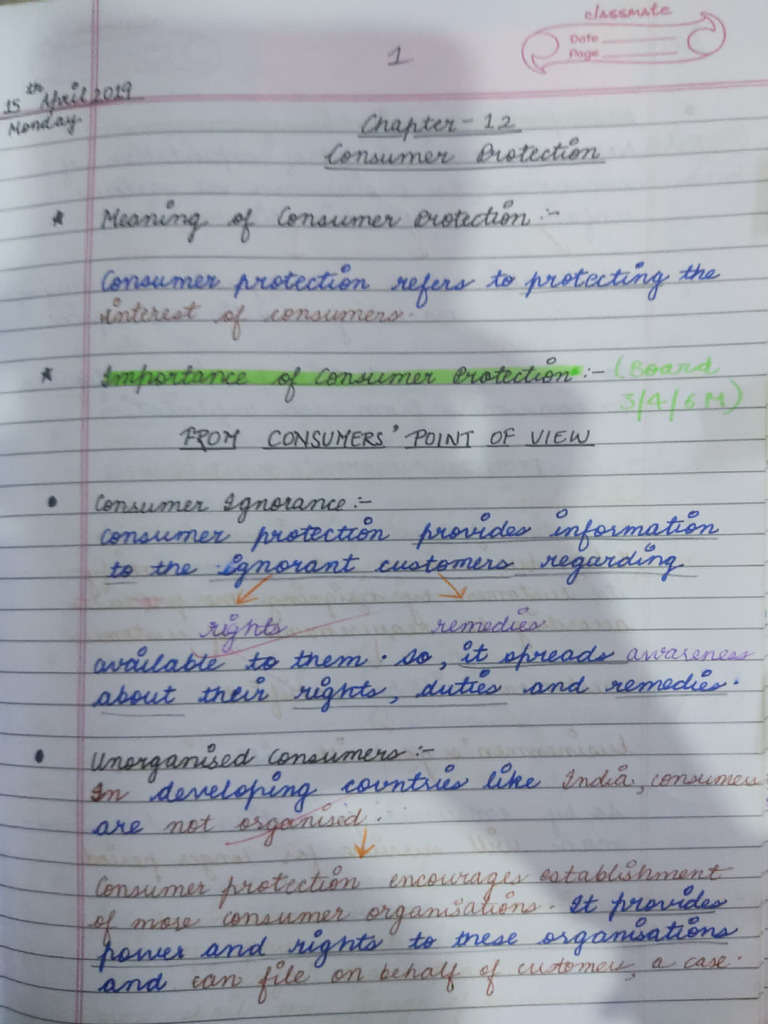 classmate
Date
Page
1
15th April 2019
Monday.
Chapter - 12
Consumer Protection
* Meaning of Consumer Protection :-
Consumer protection refers to protecting the
interest of consumers.
* Importance of Consumer Protection :- (Board
3/4/6 M)
FROM CONSUMERS' POINT OF VIEW
• Consumer Ignorance :-
Consumer protection provides information
to the ignorant customers regarding
rights remedies
available to them. So, it spreads awareness
about their rights, duties and remedies.
• Unorganised Consumers :-
In developing countries like India, consumers
are not organised.
Consumer protection encourages establishment
of more consumer organisations. It provides
power and rights to these organisations
and can file on behalf of customer, a case.